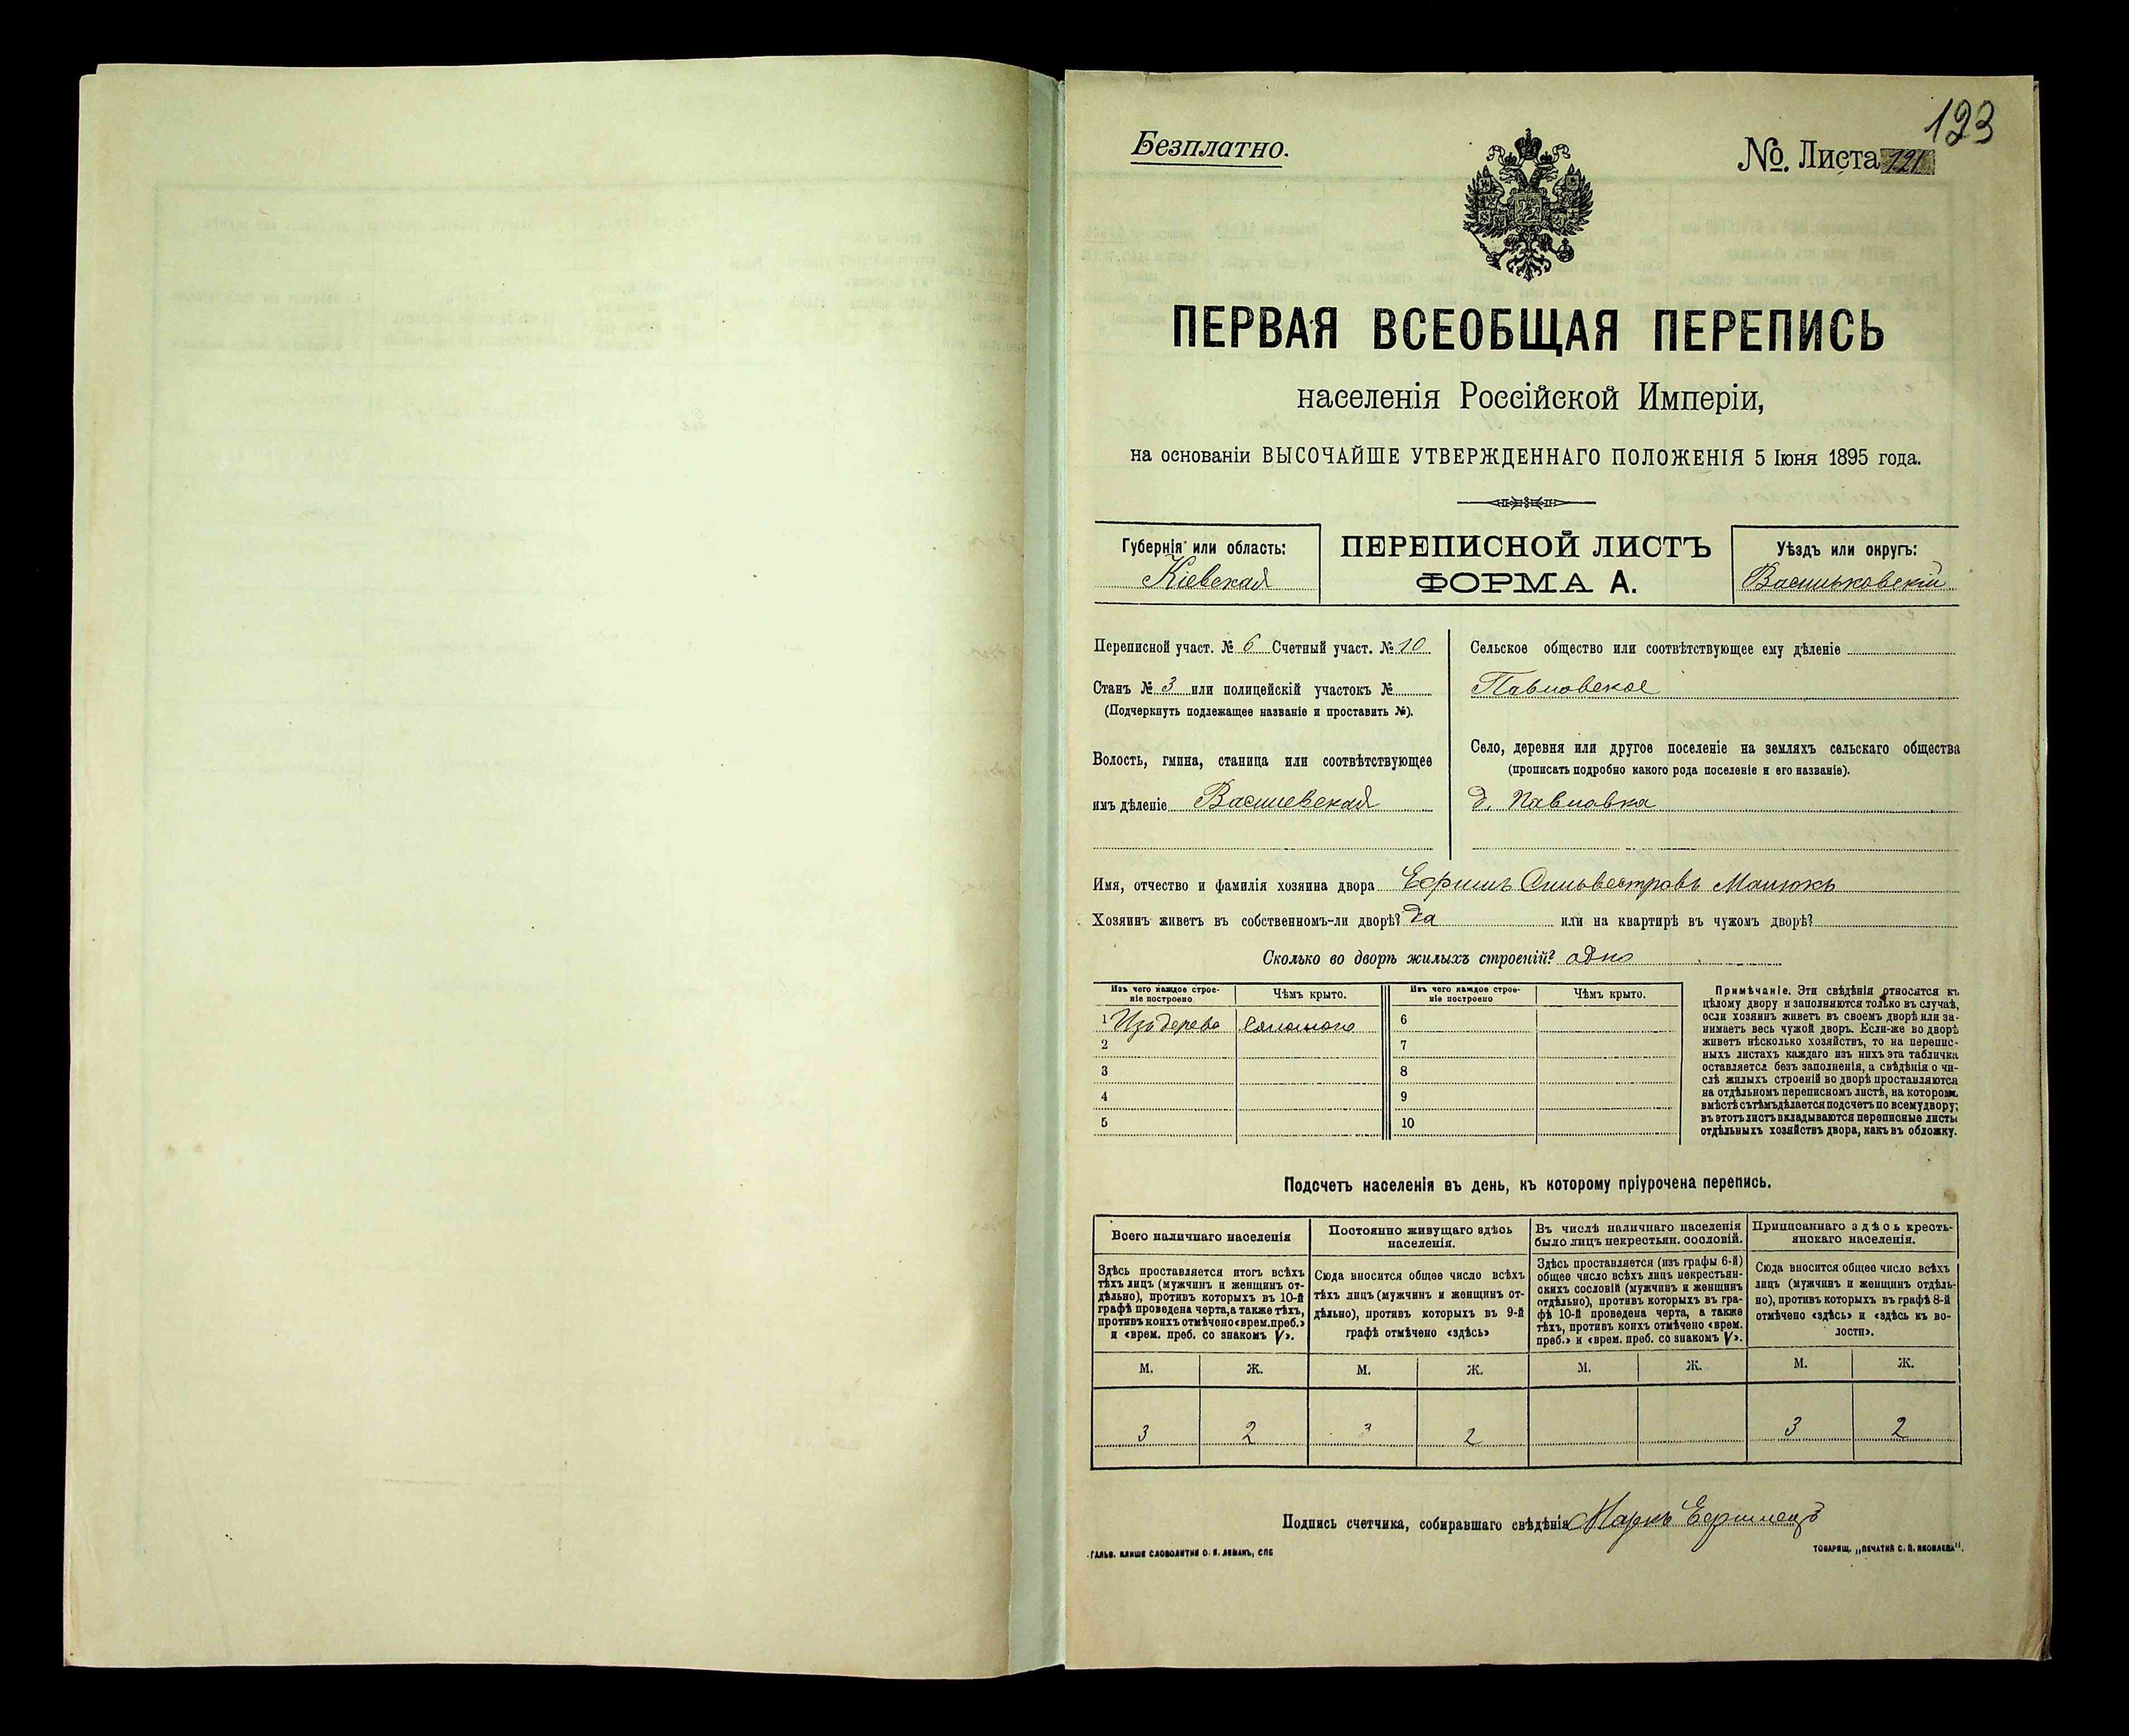 123
Безплатно.
№. Листа 121
ПЕРВАЯ ВСЕОБЩАЯ ПЕРЕПИСЬ
населенія Россійской Имперіи,
на основаніи ВЫСОЧАЙШЕ УТВЕРЖДЕННАГО ПОЛОЖЕНІЯ 5 Іюня 1895 года.
Губернія или область:
Кіевская
ПЕРЕПИСНОЙ ЛИСТЪ
ФОРМА А.
Уѣздъ или округъ:
Васильковскій
Переписной участ. № 6 Счетный участ. № 10
Станъ № 3 или полицейскій участокъ №
(Подчеркнуть подлежащее названіе и проставить №).
Волость, гмина, станица или соотвѣтствующее
имъ дѣленіе Василевская
Сельское общество или соотвѣтствующее ему дѣленіе
Павловское
Село, деревня или другое поселеніе на земляхъ сельскаго общества
(прописать подробно какого рода поселеніе и его названіе).
д. Павловка
Имя, отчество и фамилія хозяина двора Ефимъ Сильвестровъ Манюкъ
Хозяинъ живетъ въ собственномъ-ли дворѣ? да или на квартирѣ въ чужомъ дворѣ?
Сколько во дворѣ жилыхъ строеній? одно
Изъ чего каждое строе-
ніе построено
Чѣмъ крыто.
Изъ чего каждое строе-
ніе построено
Чѣмъ крыто.
1 Изъ дерева Соломою 6
2 7
3 8
4 9
5 10
Примѣчаніе. Эти свѣдѣнія относятся къ
цѣлому двору и заполняются только въ случаѣ,
если хозяинъ живетъ въ своемъ дворѣ или за-
нимаетъ весь чужой дворъ. Если-же во дворѣ
живетъ нѣсколько хозяйствъ, то на перепис-
ныхъ листахъ каждаго изъ нихъ эта табличка
оставляется безъ заполненія, а свѣдѣнія о чи-
слѣ жилыхъ строеній во дворѣ проставляются
на отдѣльномъ переписномъ листѣ, на которомъ
вмѣстѣ съ тѣмъ дѣлается подсчетъ по всему двору;
въ этотъ листъ вкладываются переписные листы
отдѣльныхъ хозяйствъ двора, какъ въ обложку.
Подсчетъ населенія въ день, къ которому пріурочена перепись.
Всего наличнаго населенія
Постоянно живущаго здѣсь
населенія.
Въ числѣ наличнаго населенія
было лицъ некрестьян. сословій.
Приписаннаго здѣсь кресть-
янскаго населенія.
Здѣсь проставляется итогъ всѣхъ
тѣхъ лицъ (мужчинъ и женщинъ от-
дѣльно), противъ которыхъ въ 10-й
графѣ проведена черта, а также тѣхъ,
противъ коихъ отмѣчено «врем. преб.»
и «врем. преб. со знакомъ V».
Сюда вносится общее число всѣхъ
тѣхъ лицъ (мужчинъ и женщинъ от-
дѣльно), противъ которыхъ въ 9-й
графѣ отмѣчено «здѣсь»
Здѣсь проставляется (изъ графы 6-й)
общее число всѣхъ лицъ некрестьян-
скихъ сословій (мужчинъ и женщинъ
отдѣльно), противъ которыхъ въ гра-
фѣ 10-й проведена черта, а также
тѣхъ, противъ коихъ отмѣчено «врем.
преб.» и «врем. преб. со знакомъ V».
Сюда вносится общее число всѣхъ
лицъ (мужчинъ и женщинъ отдѣль-
но), противъ которыхъ въ графѣ 8-й
отмѣчено «здѣсь» и «здѣсь къ во-
лости».
М. Ж. М. Ж. М. Ж. М. Ж.
3 2 3 2 3 2
Подпись счетчика, собиравшаго свѣдѣнія Маркъ
ГАЛЬВ. КЛИШЕ СЛОВОЛИТНИ О. И. ЛЕМАНЪ, СПБ
ТОВАРИЩ. „ПЕЧАТНЯ С. П. ЯКОВЛЕВА".